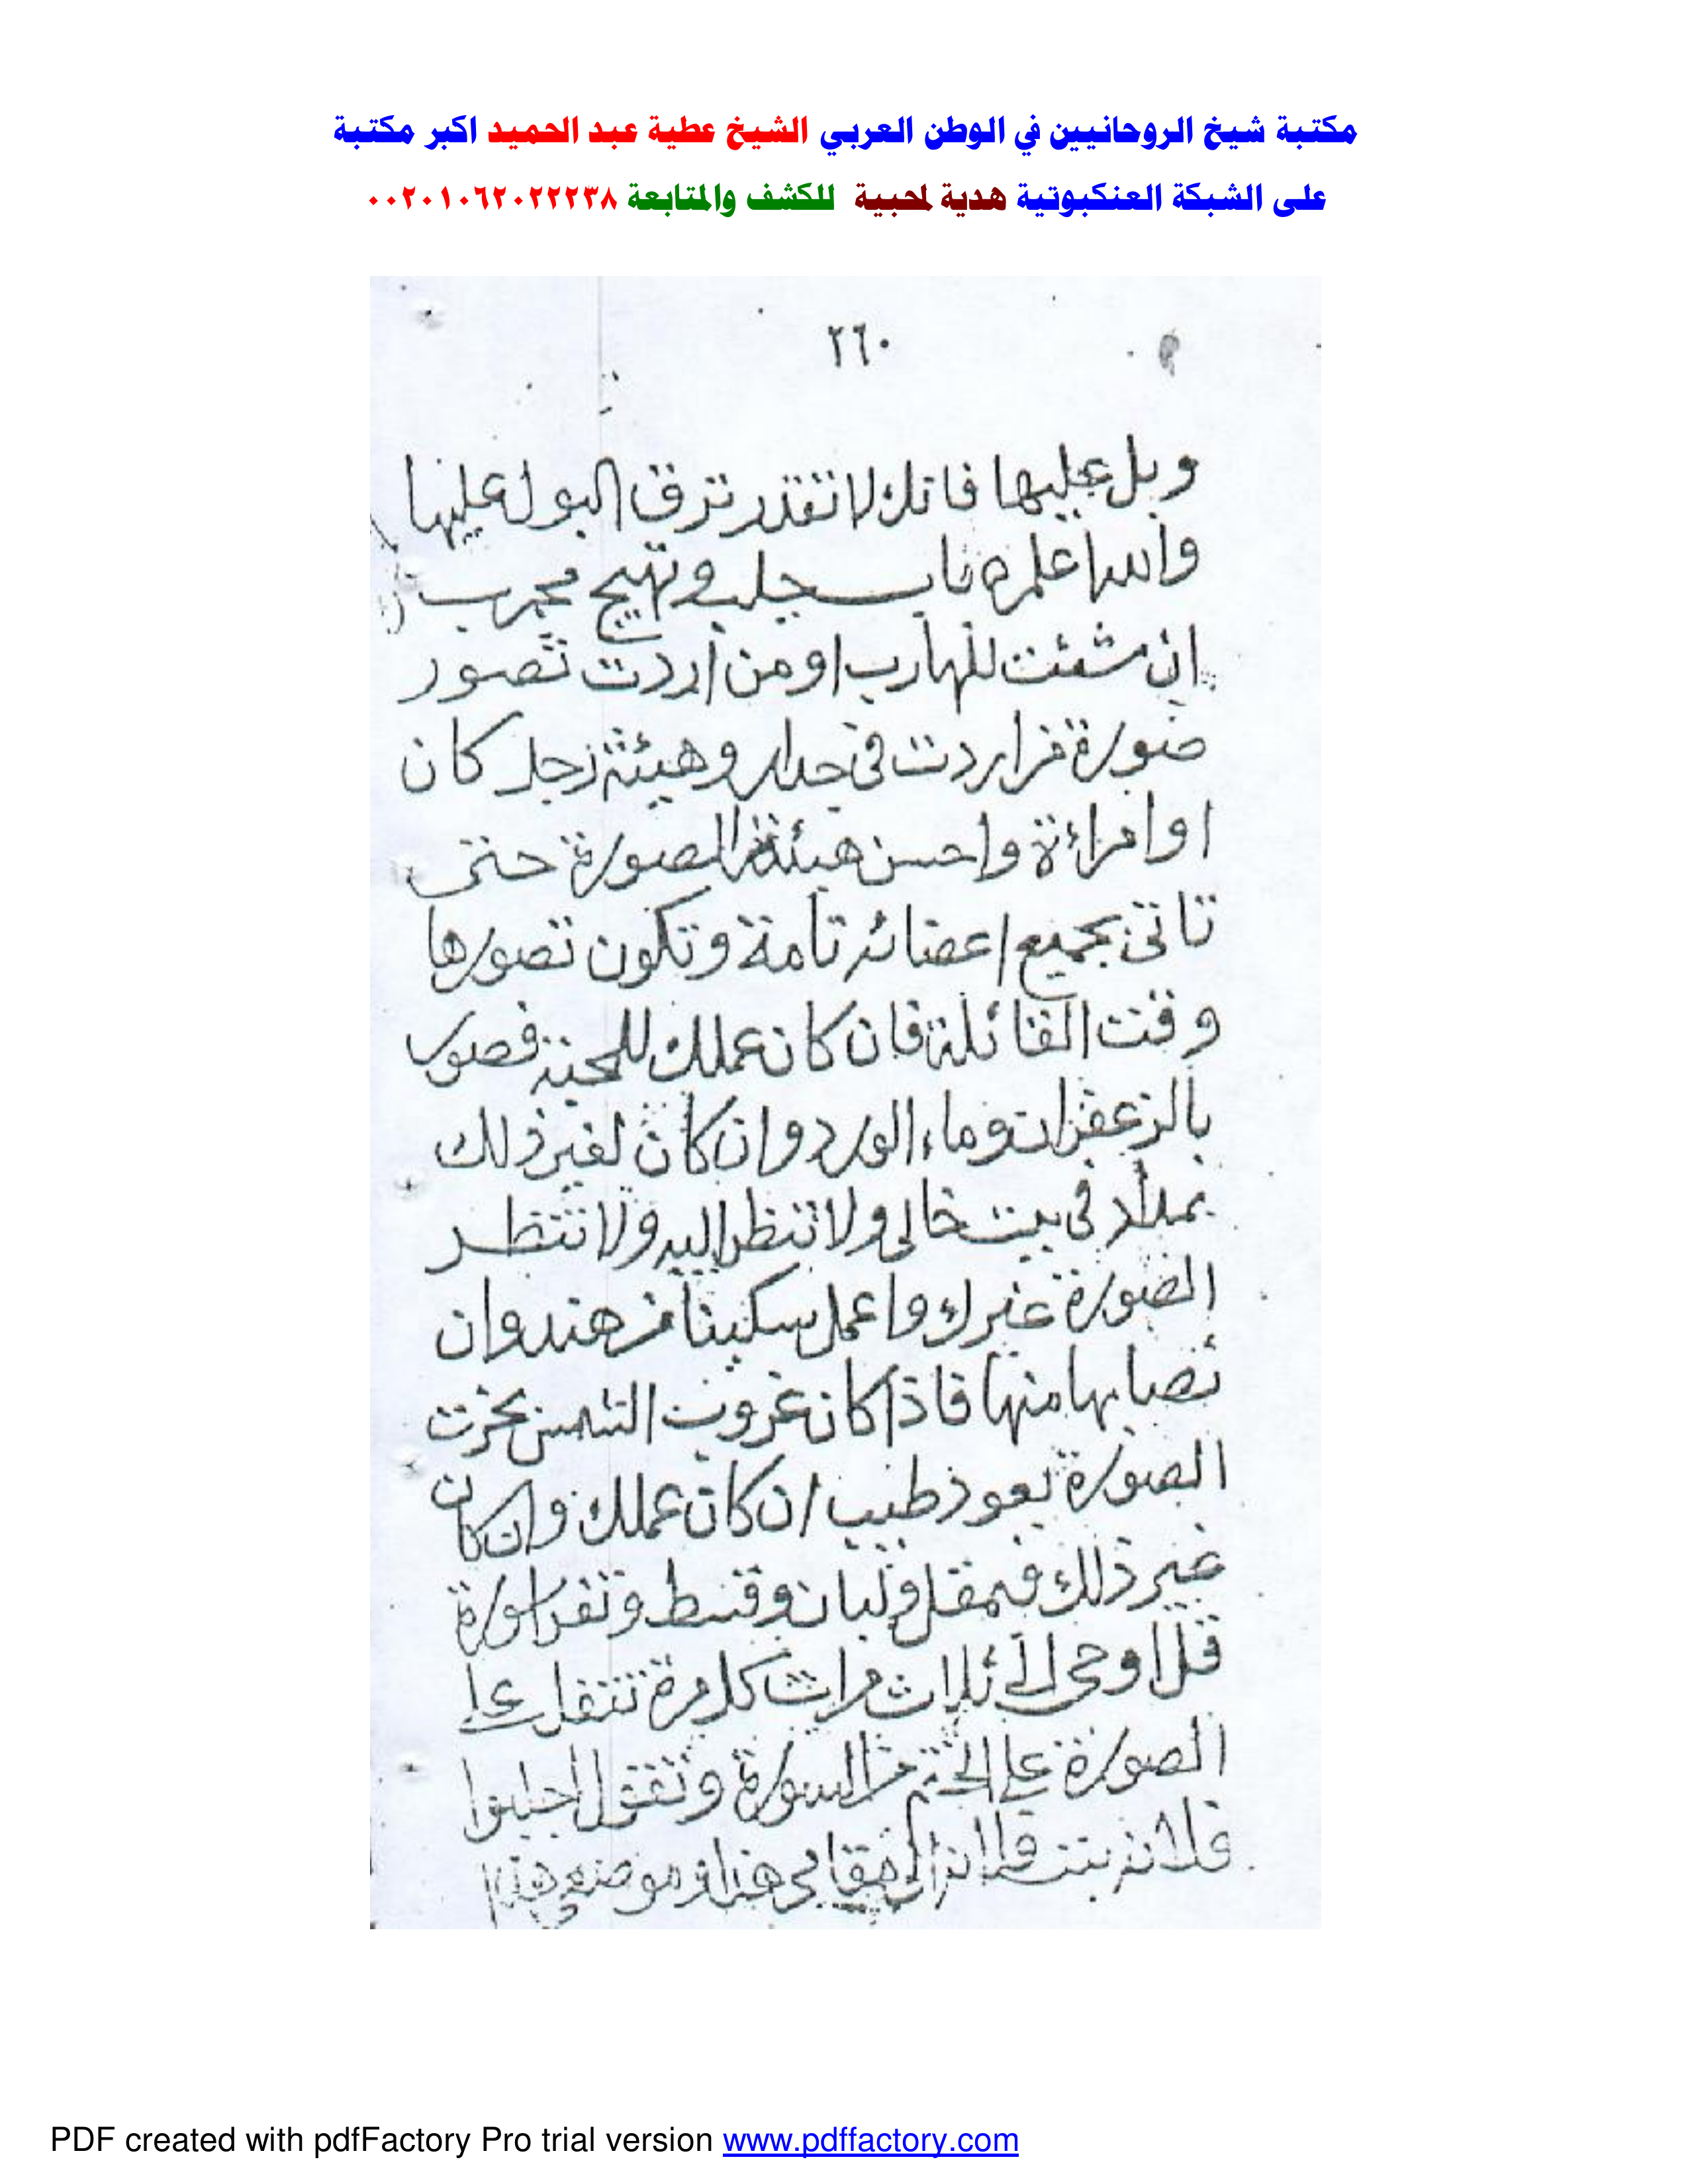 مكتبة شيخ الروحانيين في الوطن العربي الشيخ عطية عبد الحميد اكبر مكتبة
على الشبكة العنكبوتية هدية لمحبية للكشف والمتابعة ٠٠٢٠١٠٦٢٠٢٢٢٣٨
٢٦٠
وبل عليها فانك لا تقدر تزق البول عليها
والله اعلم باب جلب وتهيج مجرب
ان شئت للهارب او من اردت تصور
صورة من اردت في جدار وهيئة رجل كان
او امراءة واحسن هيئة الصورة حتى
تاتي بجميع اعضائه تامة وتكون تصورها
وقت القائلة فان كان عملك للمحبة فصور
بالزعفران وماء الورد وان كان لغير ذلك
بمداد في بيت خالى ولا تنظر اليه ولا تنتظر
الصورة غيرك واعمل سكينا من هند وان
نصابها منها فاذا كان غروب الشمس بخرت
الصورة بعود طيب ان كان عملك وان كان
غير ذلك فبمقل ولبان وقسط وتقرا سورة
قل اوحى الي ثلاث مرات كل مرة تتفل على
الصورة على الختم من السورة وتقول اجلبوا
فلانة بنت فلانة الى مقامي هذا من موضعي هذا
PDF created with pdfFactory Pro trial version www.pdffactory.com